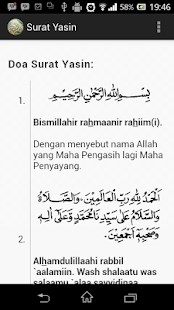 19:46
Surat Yasin
Doa Surat Yasin:
1.
بِسْمِ اللهِ الرَّحْمٰنِ الرَّحِيْمِ
Bismillahir raḫmaanir raḫiim(i).
Dengan menyebut nama Allah
yang Maha Pengasih lagi Maha
Penyayang.
2.
اَلْحَمْدُ لِلّٰهِ رَبِّ الْعَالَمِيْنَ، وَالصَّلَاةُ
وَالسَّلَامُ عَلَى سَيِّدِنَا مُحَمَّدٍ وَعَلَى اٰلِهِ
وَصَحْبِهِ اَجْمَعِيْنَ.
Alḫamdulillaahi rabbil
`aalamiin. Wash shalaatu was
salaamu `alaa sayyidinaa